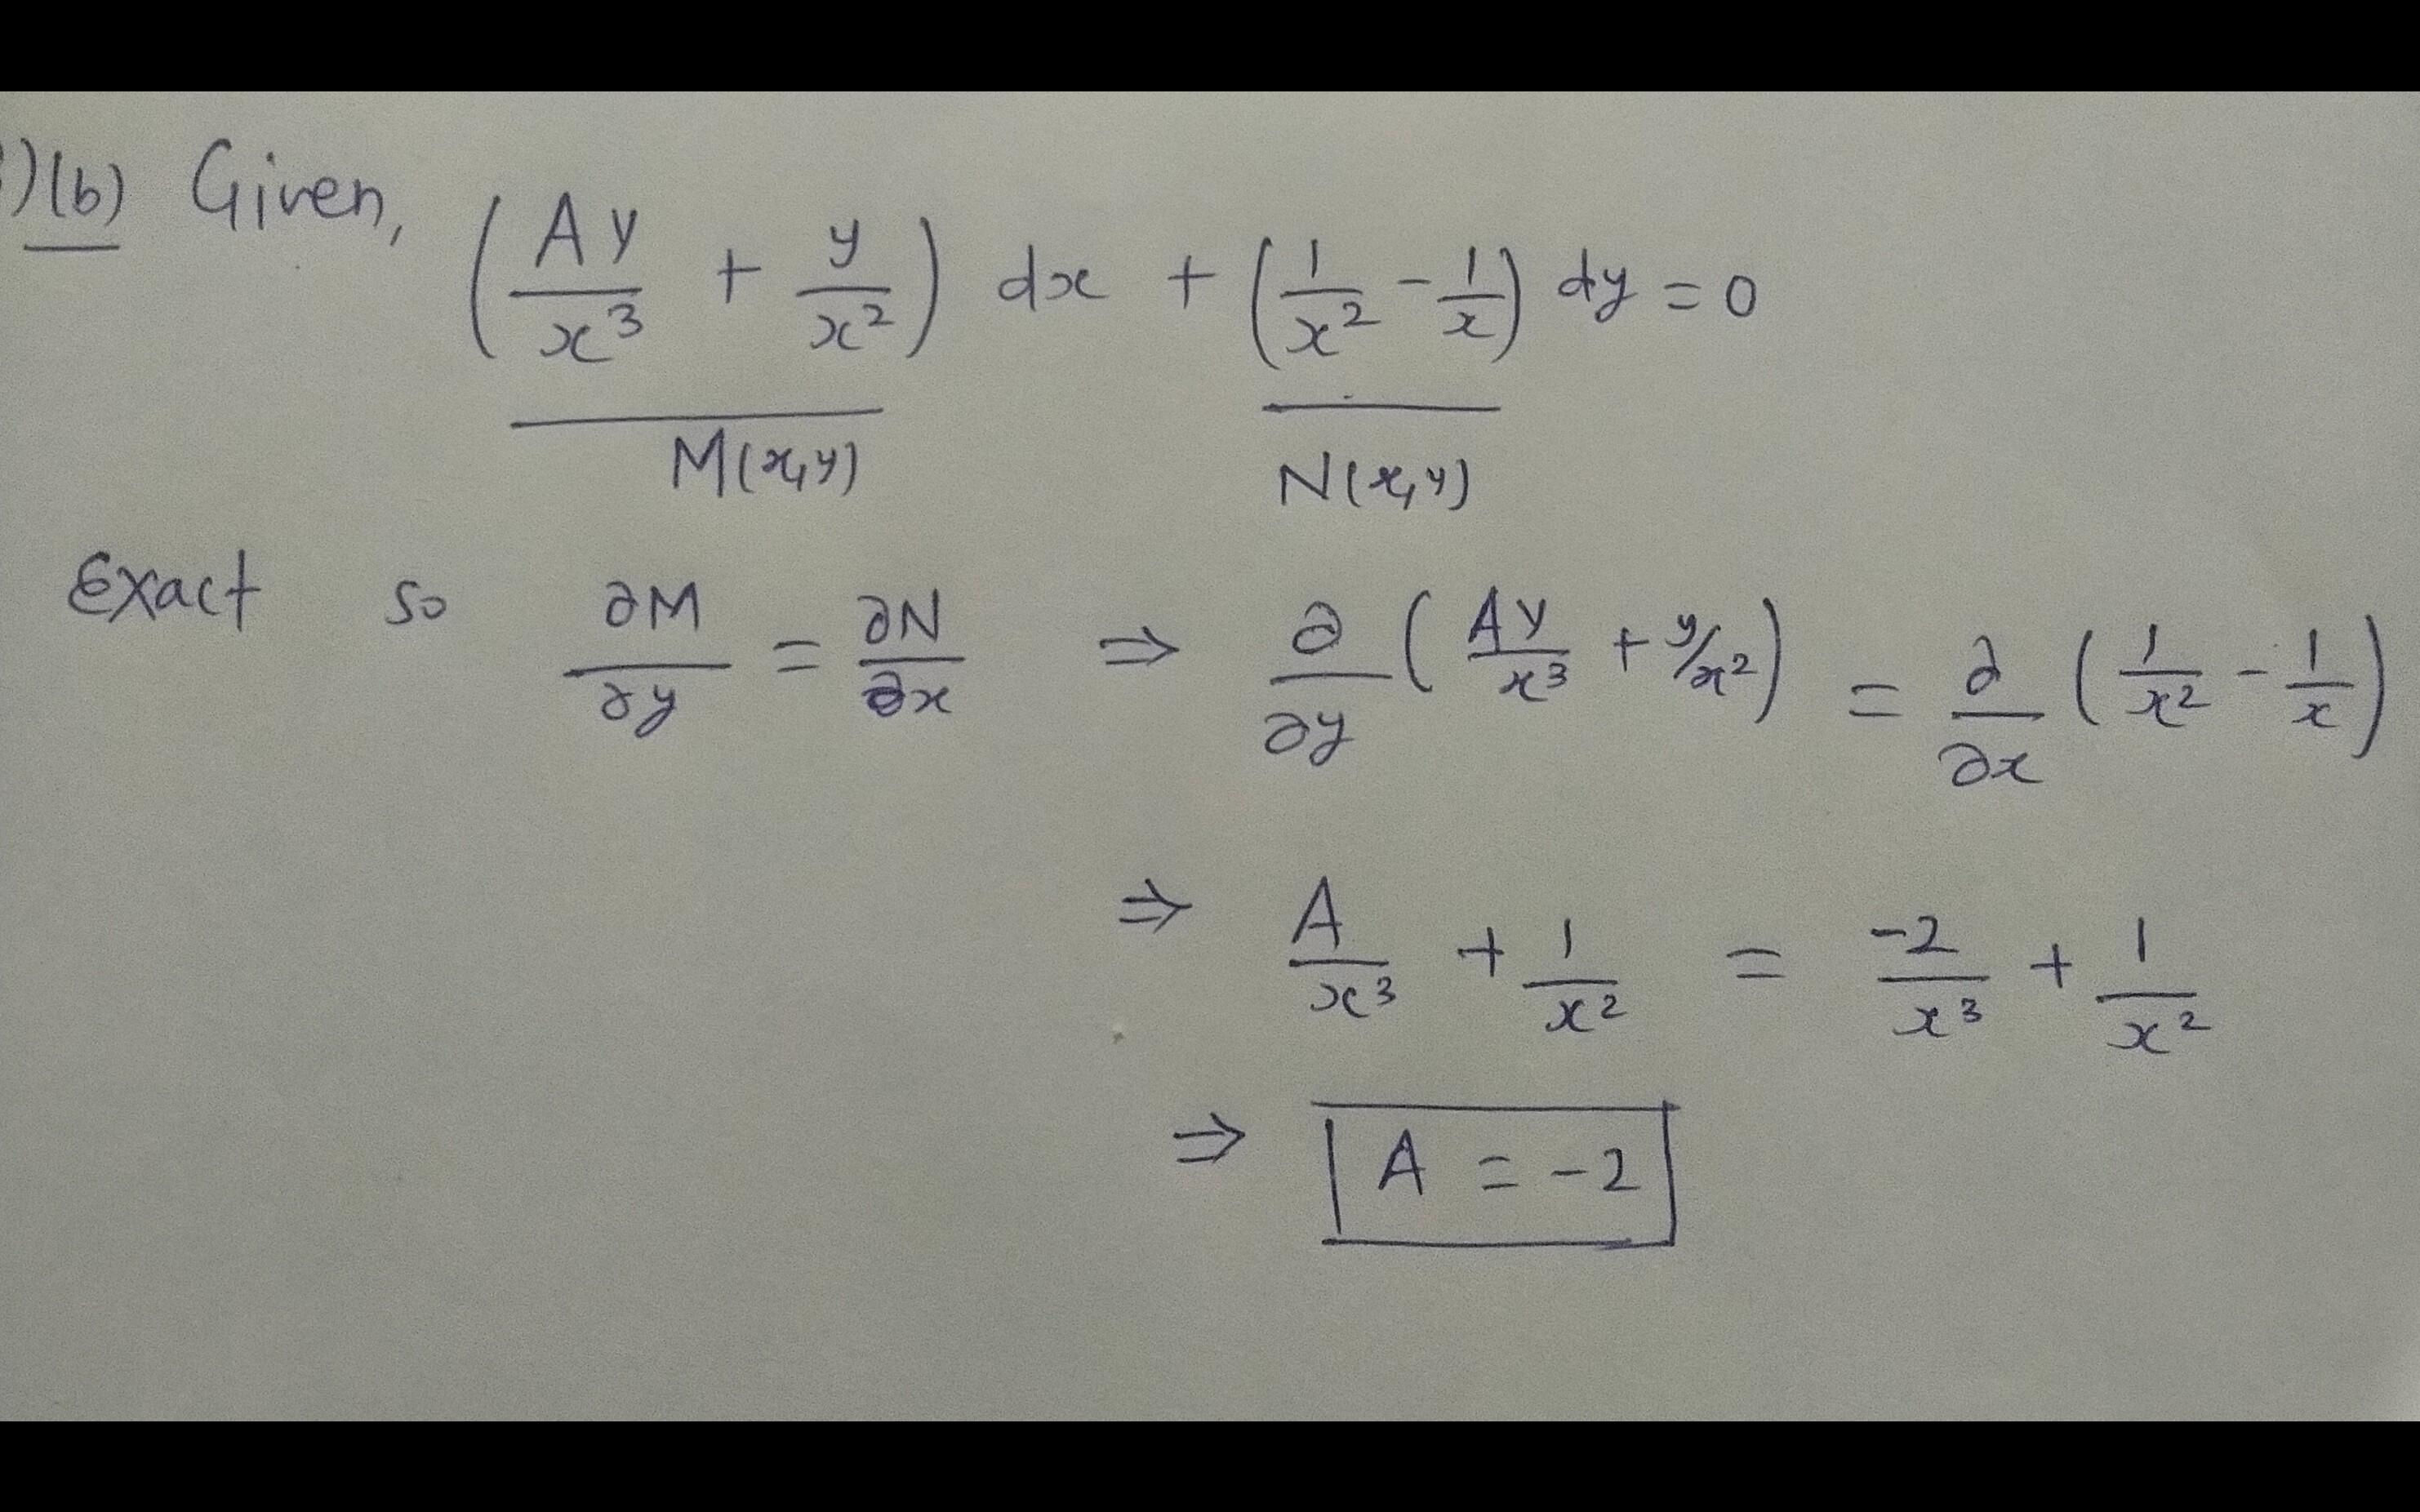 )(b) Given, (Ay/x³ + y/x²) dx + (1/x² - 1/x) dy = 0
M(x,y) N(x,y)
Exact so ∂M/∂y = ∂N/∂x ⇒ ∂/∂y (Ay/x³ + y/x²) = ∂/∂x (1/x² - 1/x)
⇒ A/x³ + 1/x² = -2/x³ + 1/x²
⇒ A = -2